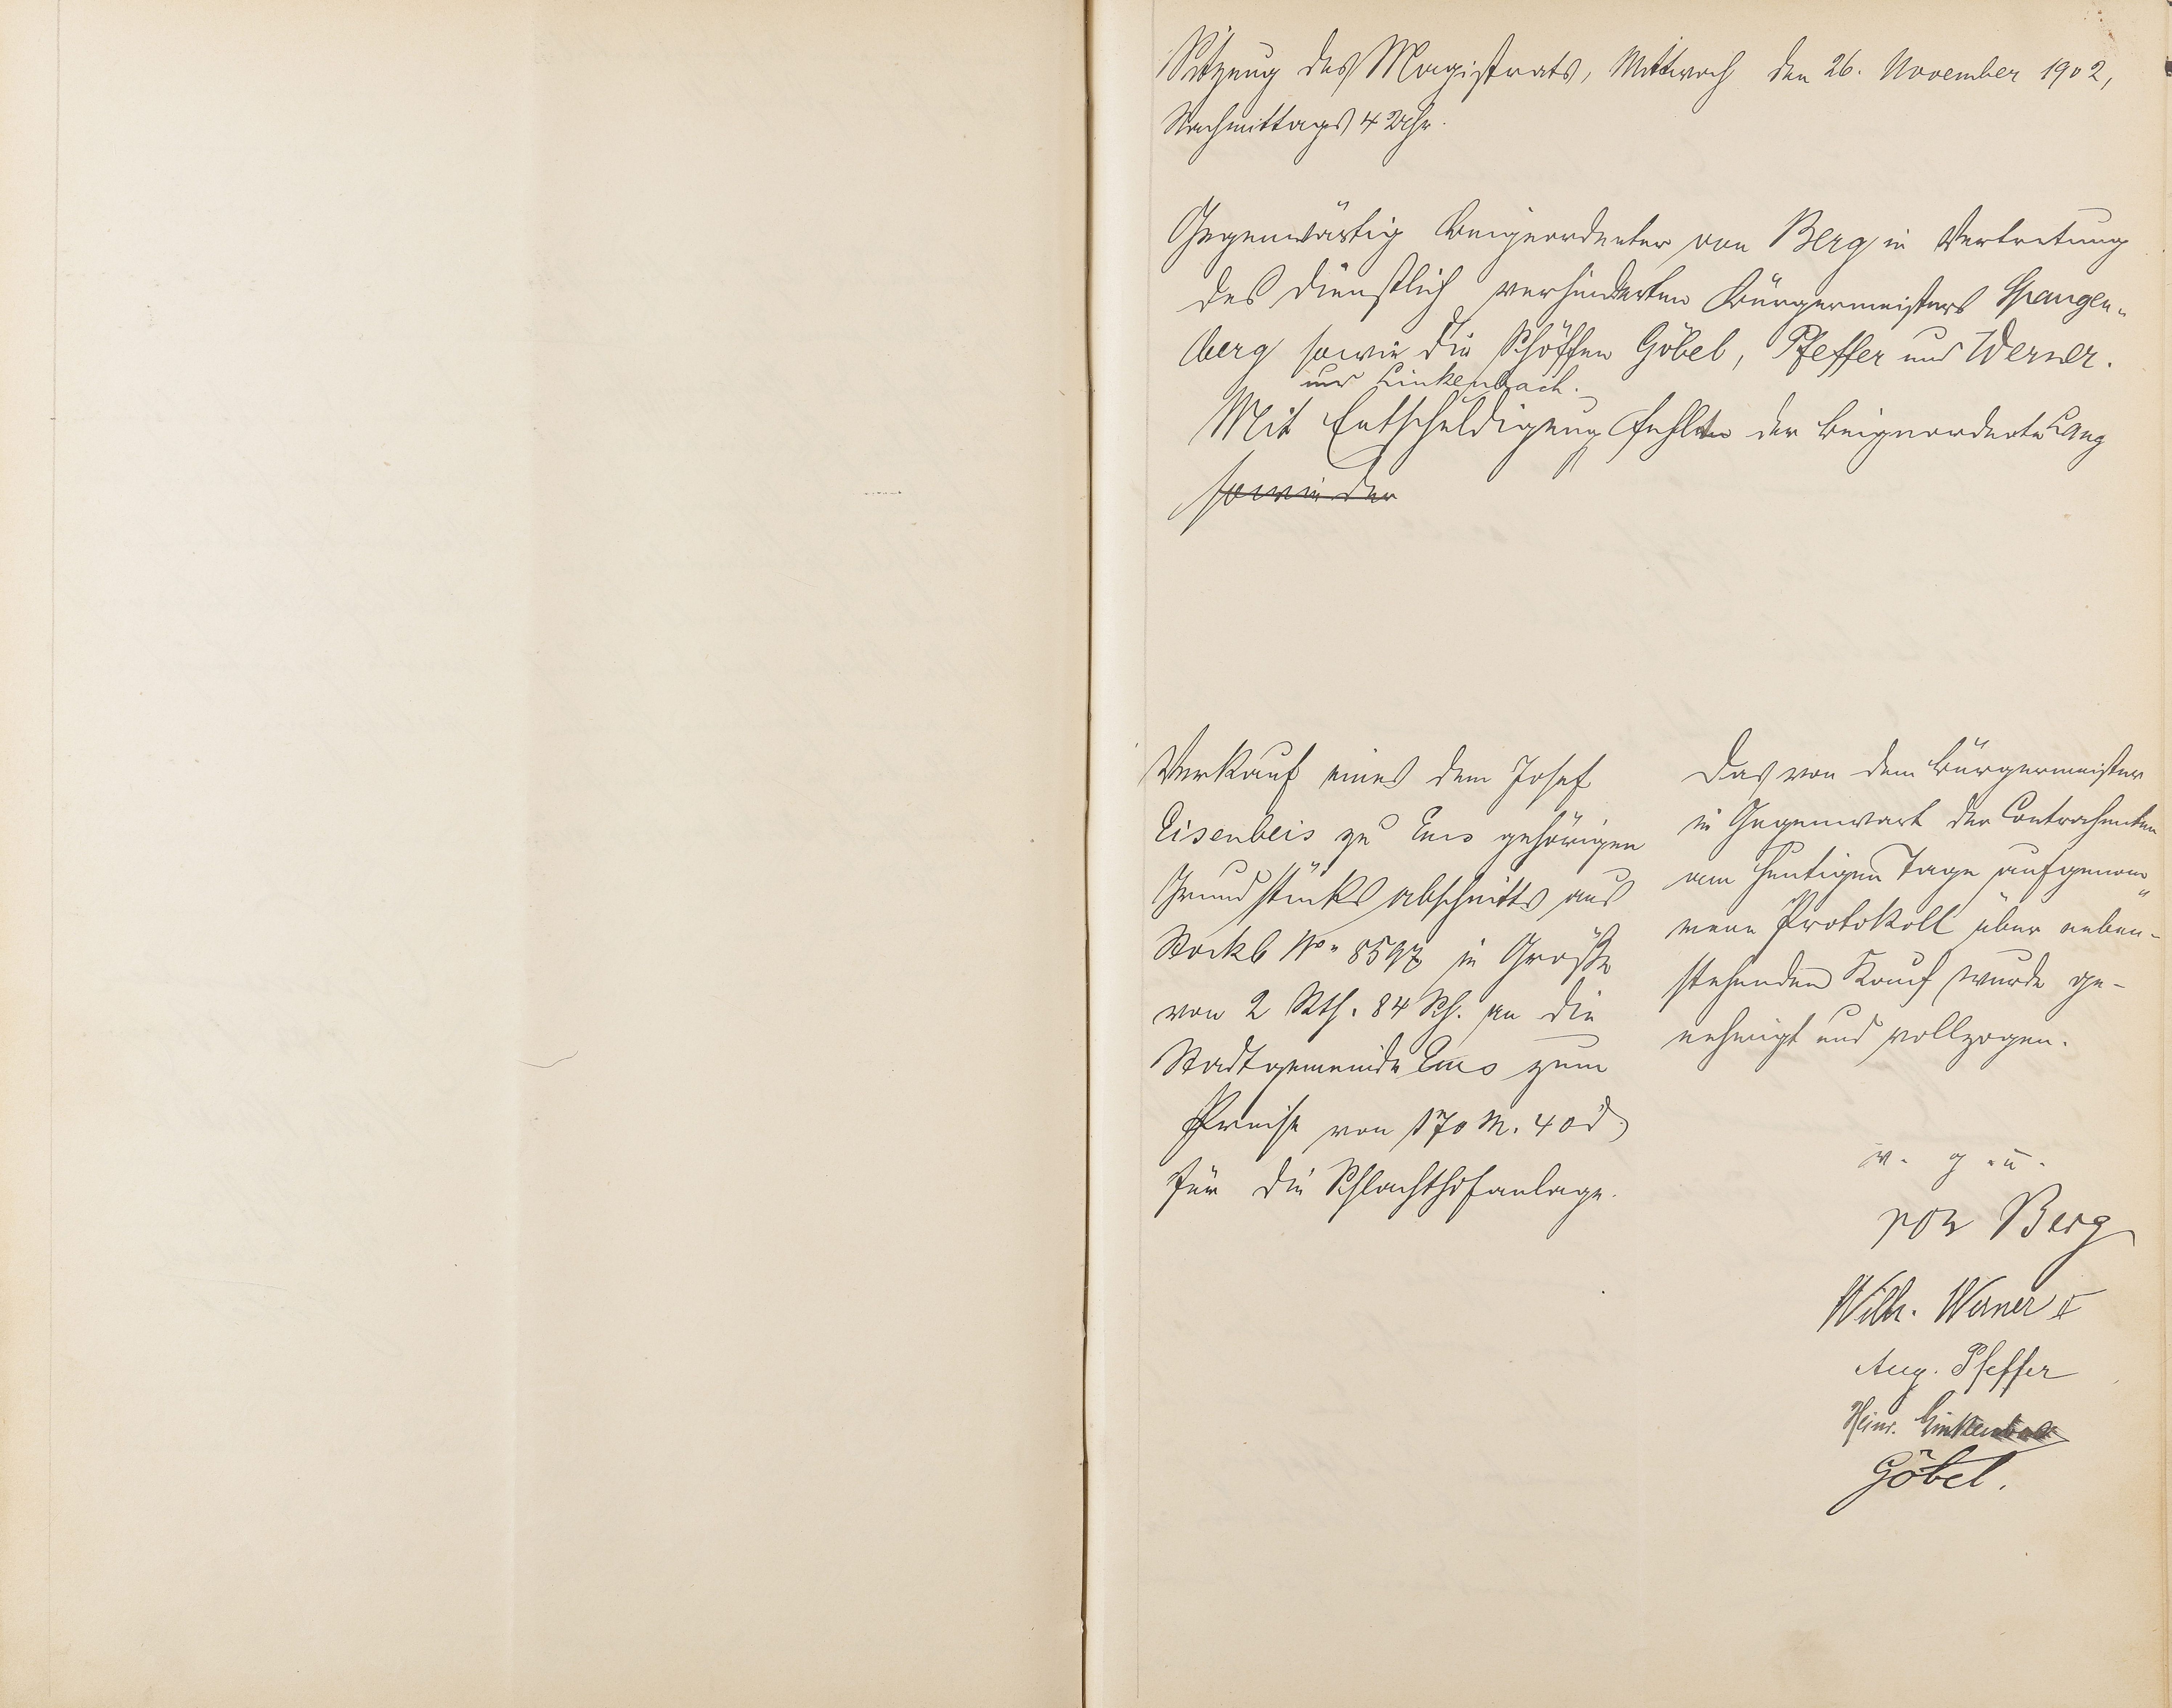 Sitzung des Magistrats, Mittwoch den 26. November 1902,
Nachmittags 4 Uhr.
Gegenwärtig Beigeordneter von Berg in Vertretung
des dienstlich verhinderten Bürgermeisters Spangen-
berg sowie die Schöffen Göbel, Pfeffer und Werner.
und Linkenbach.
Mit Entschuldigung fehlte der Beigeordnete Lang
sowie der
Verkauf eines dem Josef
Eisenbeis zu Ems gehörigen
Grundstücksabschnitts aus
Stockb No. 8597 in Größe
von 2 Rth. 84 Sch. an die
Stadtgemeinde Ems zum
Preise von 170 M. 40 d
für die Schlachthofanlage.
Das von dem Bürgermeister
in Gegenwart der Contrahenten
am heutigen Tage aufgenom-
mene Protokoll über neben-
stehenden Kauf wurde ge-
nehmigt und vollzogen.
v. g. u.
von Berg
Wilh. Werner II
Aug. Pfeffer
Heinr. Linkenbach
Göbel.